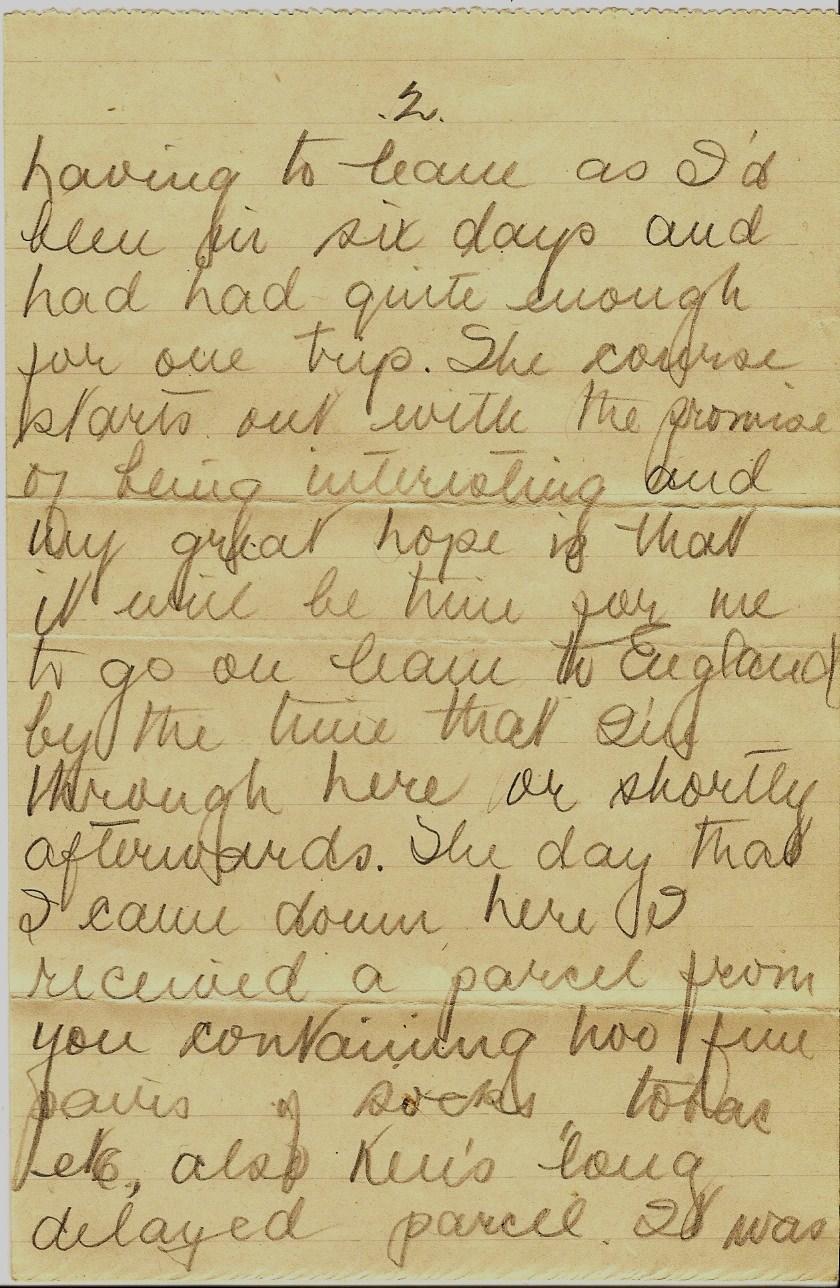 .2.
having to leave as I'd
been in six days and
had had quite enough
for one trip. The course
starts out with the promise
of being interesting and
my great hope is that
it will be time for me
to go on leave to England
by the time that I'm
through here or shortly
afterwards. The day that
I came down here I
received a parcel from
you containing two fine
pairs of socks, tobac
etc, also Ken's long
delayed parcel. It was